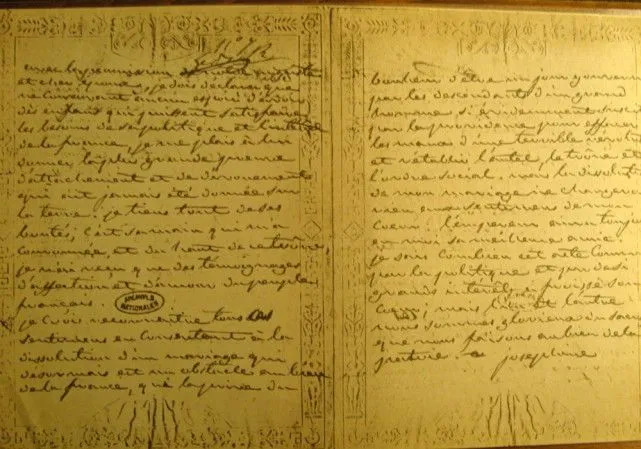 avec la permission de notre auguste
et cher époux, je dois déclarer que
ne conservant aucun espoir d'avoir
des enfans qui puissent satisfaire
les besoins de sa politique et l'intérêt
de la france, je me plais à lui
donner la plus grande preuve
d'attachement et de dévouement
qui ait jamais été donnée sur
la terre. je tiens tout de ses
bontés; c'est sa main qui m'a
couronnée, et du haut de ce trône,
je n'ai reçu que des témoignages
d'affection et d'amour du peuple
français.
ARCHIVES
NATIONALES
je crois reconnaitre tous ces
sentimens en consentant à la
dissolution d'un mariage qui
désormais est un obstacle au bien
de la france, qui la prive du
bonheur d'être un jour gouvernée
par les descendants d'un grand
homme, si evidemment suscité
par la providence pour effacer
les maux d'une terrible révolu
et rétablir l'autel, le trône et
l'ordre social. mais la dissolut
de mon mariage ne changera
rien aux sentimens de mon
coeur. l'empereur aura toujou
en moi sa meilleure amie.
je sais combien cet acte comm
par la politique et par de si
grands intérêts, a froissé son
coeur; mais l'un et l'autre
nous sommes glorieux du sacri
que nous faisons au bien de la
patrie. josephine